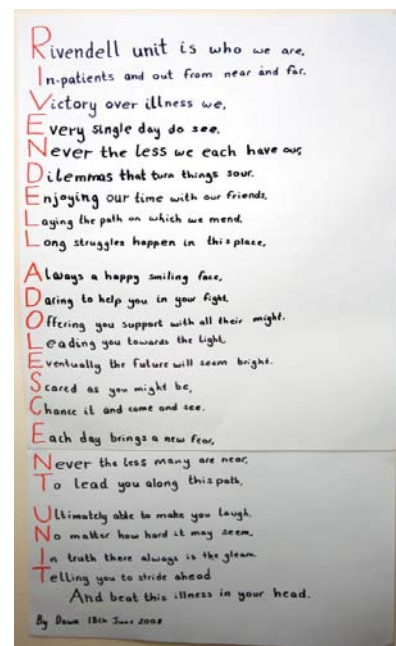 Rivendell unit is who we are,
In-patients and out from near and far.
Victory over illness we,
Every single day do see.
Never the less we each have our,
Dilemmas that turn things sour.
Enjoying our time with our friends,
Laying the path on which we mend,
Long struggles happen in this place,
Always a happy smiling face,
Daring to help you in your fight,
Offering you support with all their might.
Leading you towards the light,
Eventually the future will seem bright.
Scared as you might be,
Chance it and come and see.
Each day brings a new fear,
Never the less many are near,
To lead you along this path,
Ultimately able to make you laugh.
No matter how hard it may seem,
In truth there always is the gleam.
Telling you to stride ahead
And beat this illness in your head.
By Dawn 18th June 2008